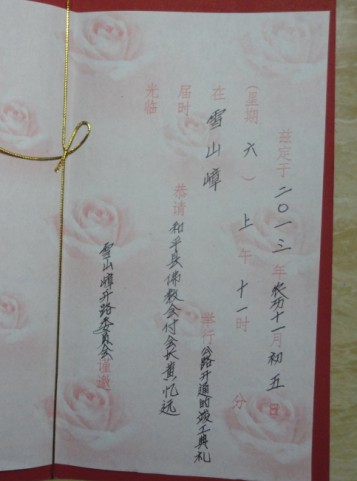 兹定于二〇一三年农历十一月初五日
(星期六)上午十一时 分
在雪山嶂 举行公路开通的竣工典礼
届时 恭请和平县佛教会付会长黄忆远
光临
雪山嶂开路委员会谨邀